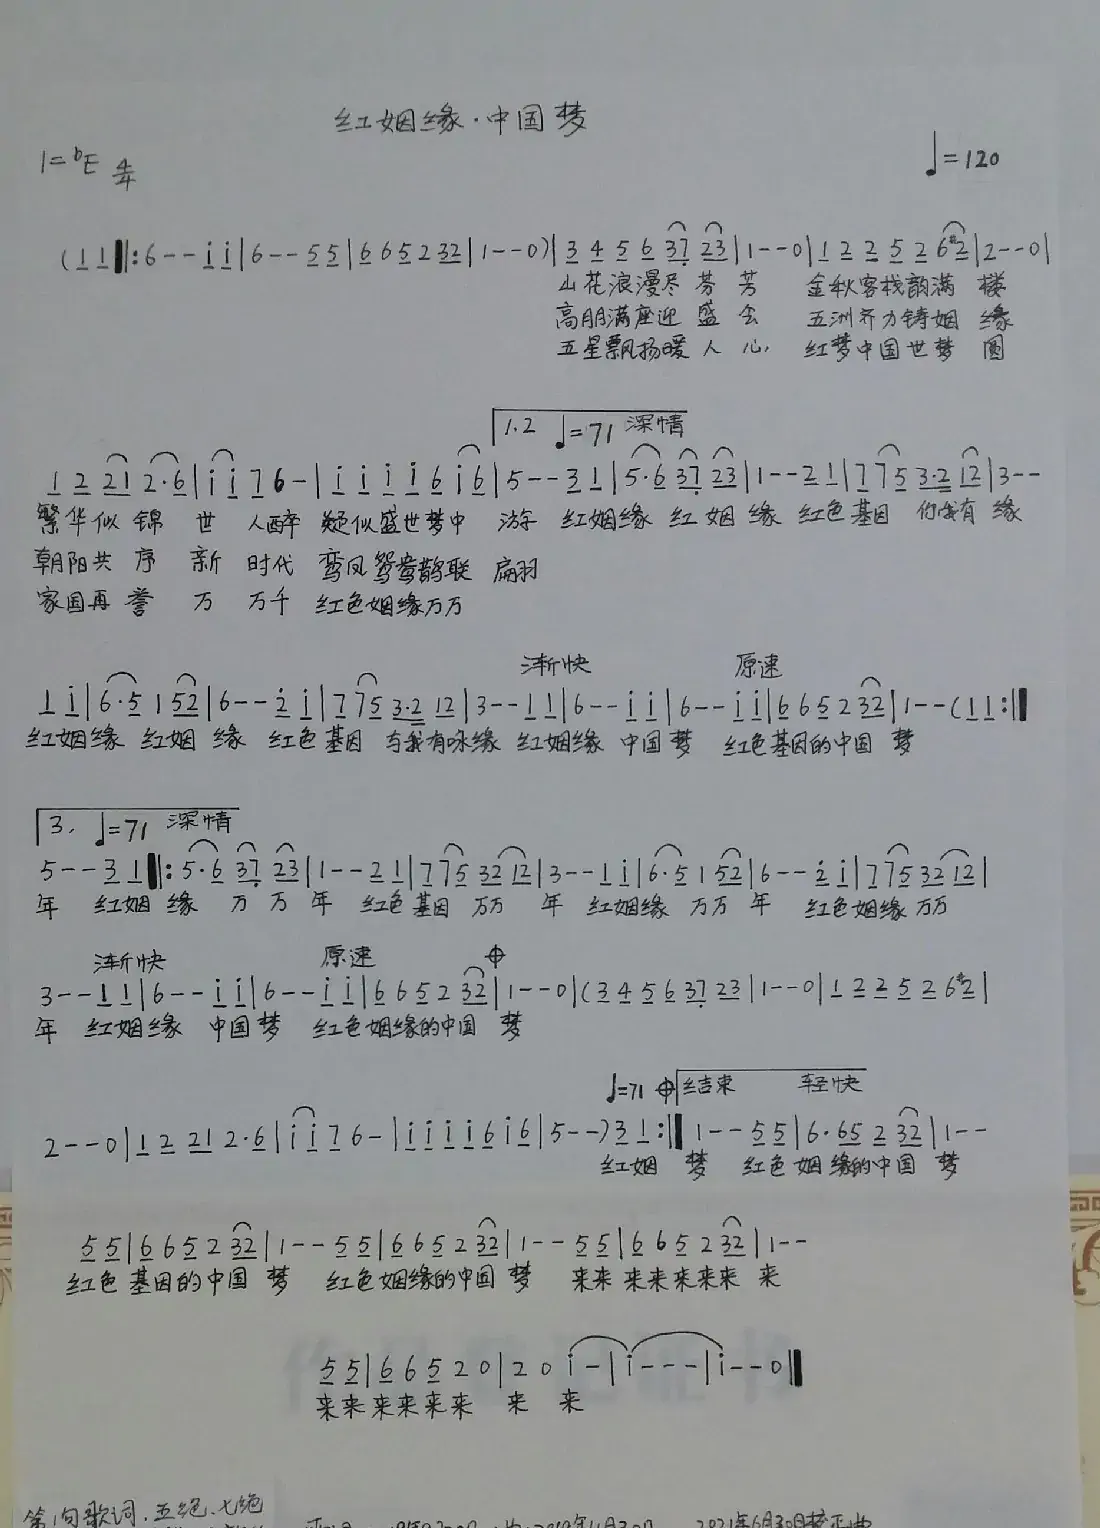 红姻缘·中国梦
1=bE 4/4 ♩=120
(1 1‖:6--i i|6--5 5|6 6 5 2 32|1--0)|3 4 5 6 37 23|1--0|1 2 2 5 2 6#2|2--0|
山花浪漫尽芬芳 金秋客栈韵满楼
高朋满座迎盛会 五洲齐力铸姻缘
五星飘扬暖人心 红梦中国世梦圆
1.2 ♩=71 深情
1 2 21 2·6|i i 7 6-|i i i i 6 i6|5--3 1|5·6 37 23|1--2 1|7 75 3·2 12|3--
繁华似锦世人醉 疑似盛世梦中游 红姻缘 红姻缘 红色基因 你我有缘
朝阳共序新时代 鸾凤鸳鸯鹊联翩
家国再誉万万千 红色姻缘万万
渐快 原速
1 i|6·5 1 52|6--2 i|7 75 3·2 12|3--1 1|6--i i|6--i i|6 6 5 2 32|1--(1 1:‖
红姻缘 红姻缘 红色基因 与我有咏缘 红姻缘 中国梦 红色基因的中国梦
3. ♩=71 深情
5--3 1‖:5·6 37 23|1--2 1|7 75 32 12|3--1 i|6·5 1 52|6--2 i|7 75 32 12|
年 红姻缘 万万年 红色基因 万万年 红姻缘 万万年 红色姻缘万万
渐快 原速 𝄌
3--1 1|6--i i|6--i i|6 6 5 2 32|1--0|(3 4 5 6 37 23|1--0|1 2 2 5 2 6#2|
年 红姻缘 中国梦 红色姻缘的中国梦
♩=71 𝄌 结束 轻快
2--0|1 2 21 2·6|i i 7 6-|i i i i 6 i6|5--)3 1:‖1--5 5|6·65 2 32|1--
红姻 梦 红色姻缘的中国梦
5 5|6 6 5 2 32|1--5 5|6 6 5 2 32|1--5 5|6 6 5 2 32|1--
红色基因的中国梦 红色姻缘的中国梦 来来来来来来来来
5 5|6 6 5 2 0|2 0 i-|i---|i--0‖
来来来来来来 来 来
第1句歌词.五绝.七绝